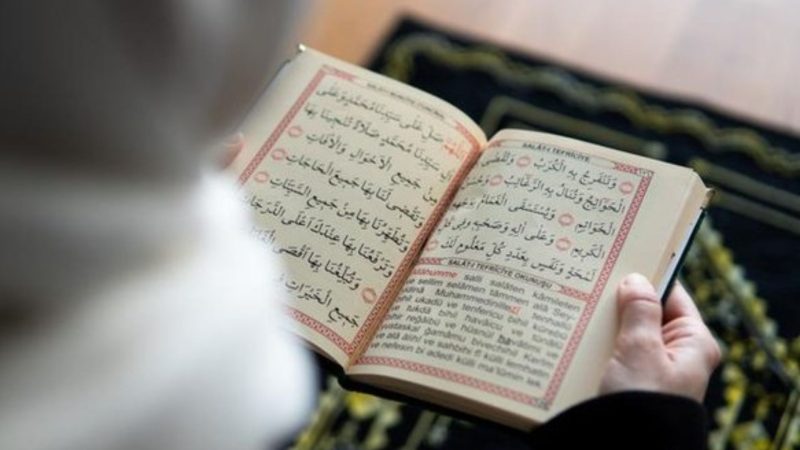 SALÂT-I TEFRİCİYE
وَتَنْفَرِجُ بِهِ الْكُرَبُ وَتُقْضٰى
الْحَوَائِجُ وَتُنَالُ بِهِ الرَّغَائِبُ
الْخَوَاتِيمِ وَيُسْتَسْقَى الْغَمَامُ بِوَجْهِهِ
الْكَرِيمِ وَعَلٰى اٰلِهِ وَصَحْبِهِ فِي كُلِّ
لَمْحَةٍ وَنَفَسٍ بِعَدَدِ كُلِّ مَعْلُومٍ لَكَ
SALÂT-I TEFRİCİYE OKUNUŞU
lâhümme salli salâten kâmileten
ve sellim selâmen tâmmen alâ Sey-
dinâ Muhammedinillezî
bihil ukadü ve tenfericu bihil kürabü
ve tukdâ bihil havâicu ve tünâlü
bihir reğâibü ve hüsnül havâtimi ve
yüsteskal ğamâmu bivechihil Kerîm
ve alâ âlihî ve sahbihî fî külli lemhatin
ve nefesin bi adedi külli ma'lûmin lek.
اَللّٰهُمَّ صَلِّ عَلٰى سَيِّدِنَا مُحَمَّدٍ وَعَلٰى
اٰلِ سَيِّدِنَا مُحَمَّدٍ صَلَاةً تُنْجِينَا بِهَا
مِنْ جَمِيعِ الْاَحْوَالِ وَالْاٰفَاتِ
وَتَقْضِي لَنَا بِهَا جَمِيعَ الْحَاجَاتِ
وَتُطَهِّرُنَا بِهَا مِنْ جَمِيعِ السَّيِّئَاتِ
وَتَرْفَعُنَا بِهَا عِنْدَكَ اَعْلَى الدَّرَجَاتِ
وَتُبَلِّغُنَا بِهَا اَقْصَى
جَمِيعِ الْخَيْرَاتِ